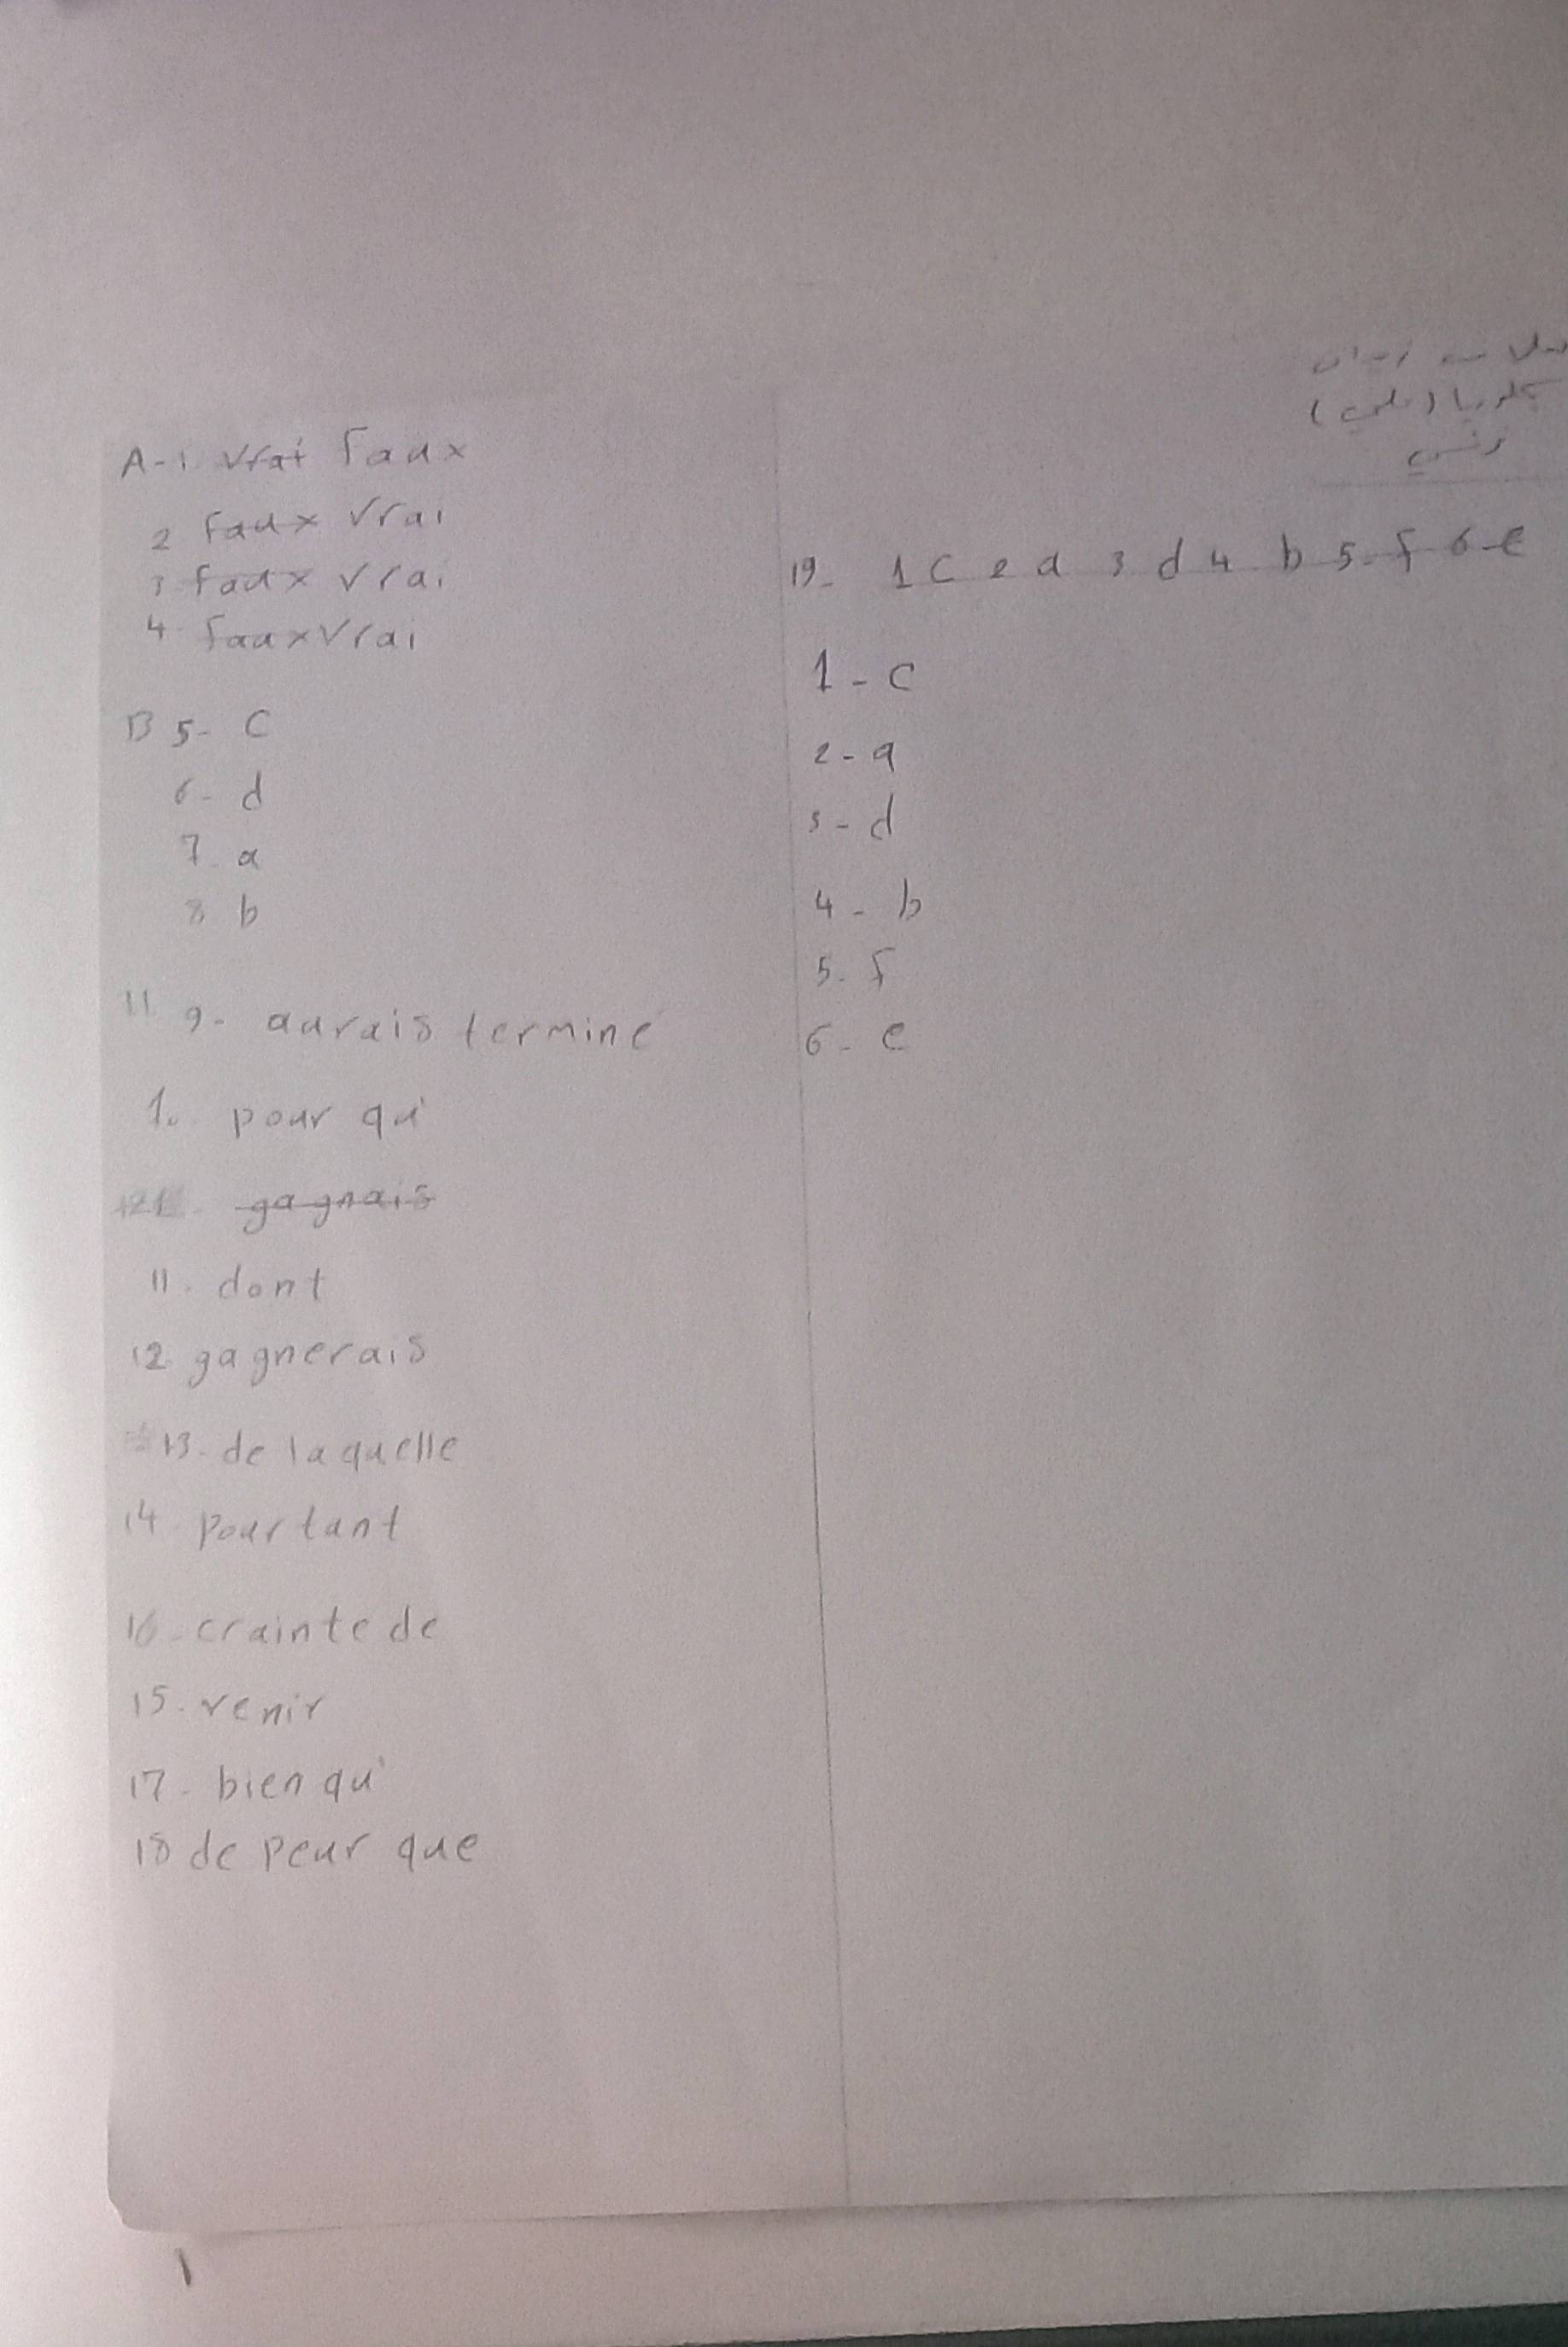 A-1 vrai faux
2 faux vrai
3 faux vrai
4. faux vrai
B 5- C
6- d
7. a
8 b
11 9- aurais termine
10 pour qu'
gagnais
11. dont
12 gagnerais
13- de laquelle
14 pourtant
16- crainte de
15. venir
17- bien qu'
18 de peur que
(علمي)
19- 1 c 2 a 3 d 4 b 5- f 6- e
1 - c
2 - a
3 - d
4 - b
5. f
6 - e